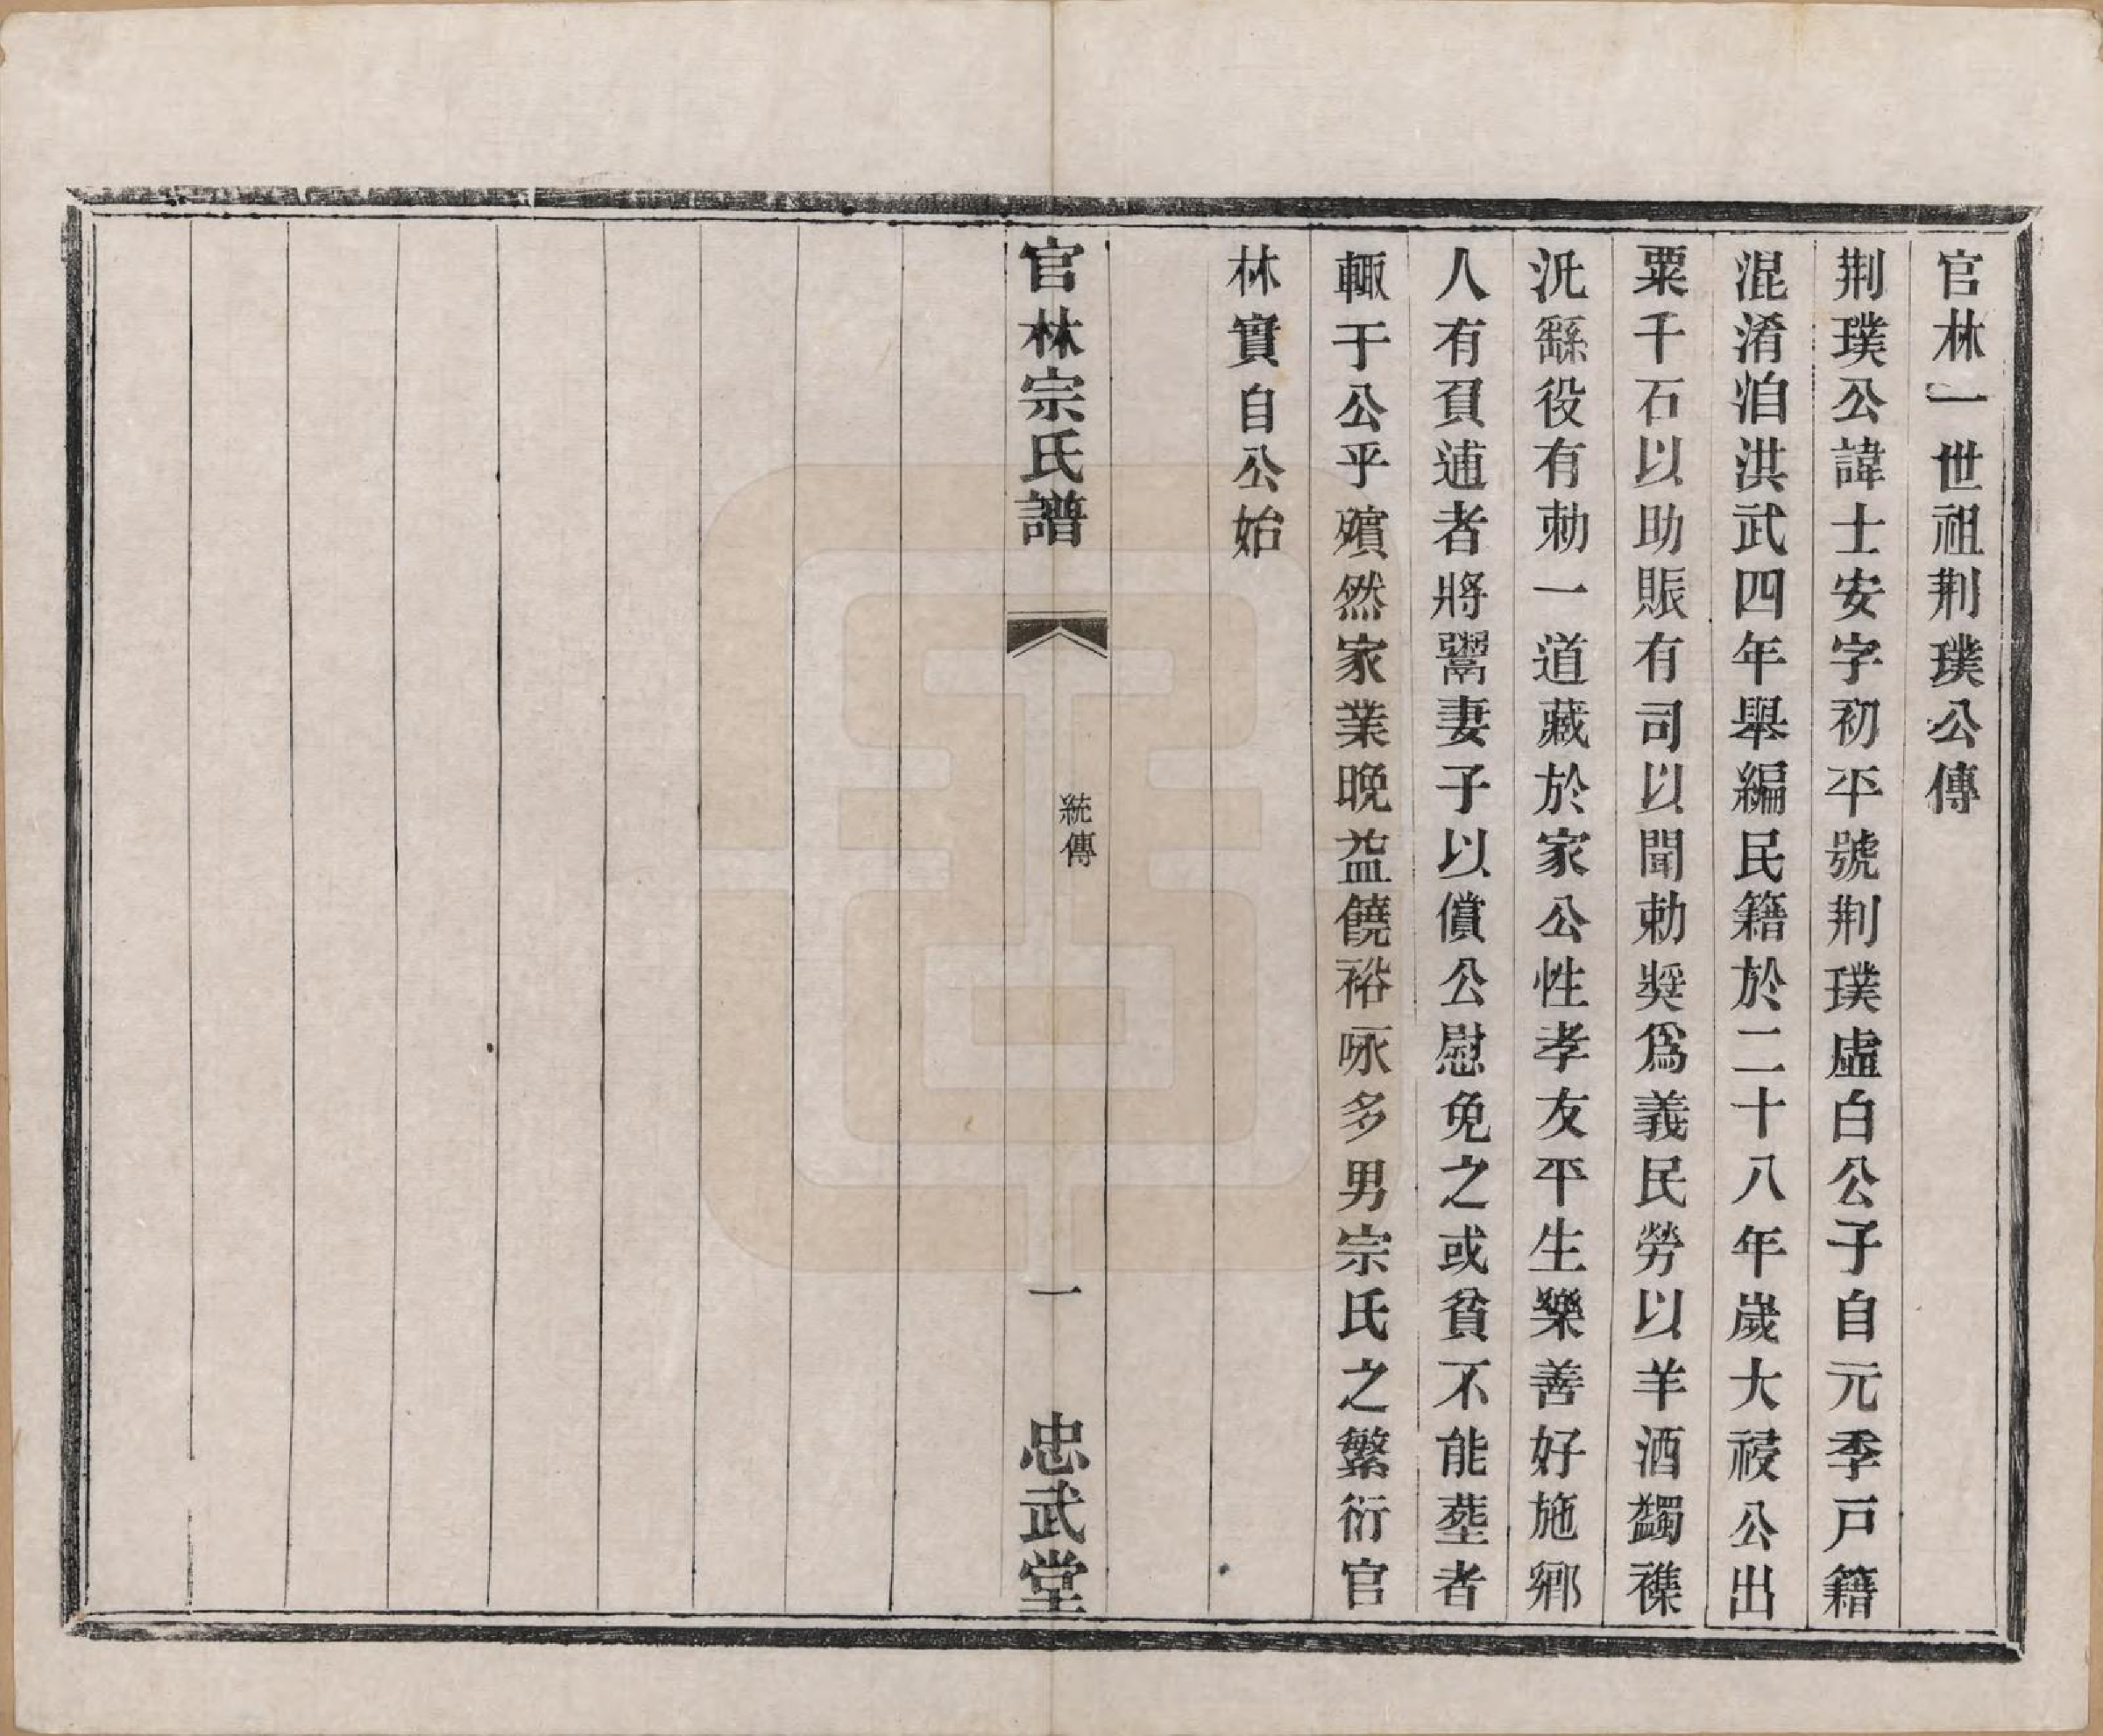 官林一世祖荆璞公傳
荆璞公諱士安字初平號荆璞虛白公子自元季戸籍
混淆洎洪武四年舉編民籍於二十八年歲大祲公出
粟千石以助賑有司以聞勅奬爲義民勞以羊酒蠲襍
泛繇役有勅一道藏於家公性孝友平生樂善好施鄉
人有負逋者將鬻妻子以償公慰免之或貧不能塟者
輒于公乎殯然家業晚益饒裕咏多男宗氏之繁衍官
林實自公始
官林宗氏譜
統傳
一
忠武堂